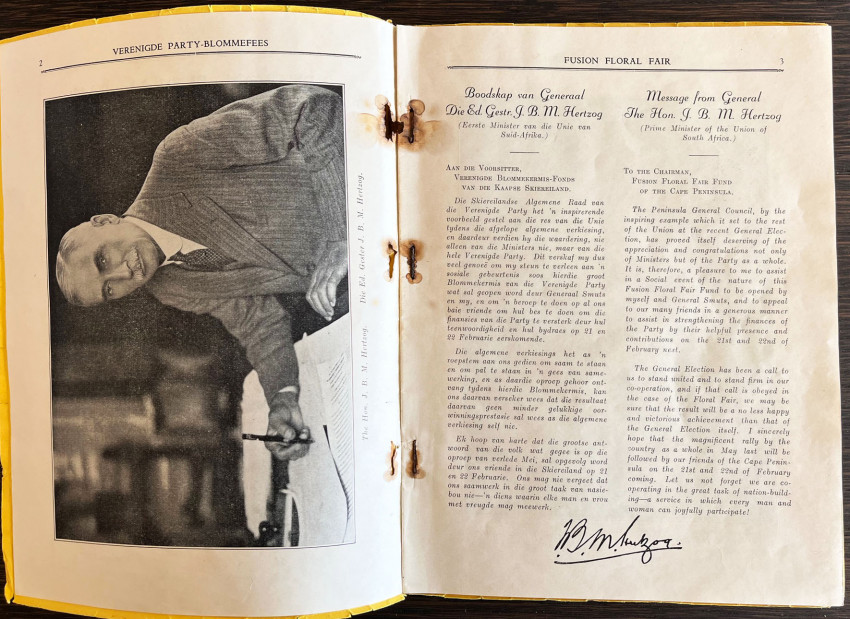 2
VERENIGDE PARTY-BLOMMEFEES
The Hon. J. B. M. Hertzog. Die Ed. Gestr J. B. M. Hertzog.
FUSION FLORAL FAIR
3
Boodskap van Generaal
Die Ed. Gestr. J. B. M. Hertzog
(Eerste Minister van die Unie van
Suid-Afrika.)
AAN DIE VOORSITTER,
VERENIGDE BLOMMEKERMIS-FONDS
VAN DIE KAAPSE SKIEREILAND.
Die Skiereilandse Algemene Raad van
die Verenigde Party het 'n inspirerende
voorbeeld gestel aan die res van die Unie
tydens die afgelope algemene verkiesing,
en daardeur verdien hy die waardering, nie
alleen van die Ministers nie, maar van die
hele Verenigde Party. Dit verskaf my dus
veel genoeë om my steun te verleen aan 'n
sosiale gebeurtenis soos hierdie groot
Blommekermis van die Verenigde Party
wat sal geopen word deur Generaal Smuts
en my, en om 'n beroep te doen op al ons
baie vriende om hul bes te doen om die
finansies van die Party te versterk deur hul
teenwoordigheid en hul bydraes op 21 en
22 Februarie eerskomende.
Die algemene verkiesings het as 'n
roepstem aan ons gedien om saam te staan
en om pal te staan in 'n gees van same-
werking, en as daardie oproep gehoor ont-
vang tydens hierdie Blommekermis, kan
ons daarvan verseker wees dat die resultaat
daarvan geen minder gelukkige oor-
winningsprestasie sal wees as die algemene
verkiesing self nie.
Ek hoop van harte dat die grootse ant-
woord van die volk wat gegee is op die
oproep van verlede Mei, sal opgevolg word
deur ons vriende in die Skiereiland op 21
en 22 Februarie. Ons mag nie vergeet dat
ons saamwerk in die groot taak van nasie-
bou nie—'n diens waarin elke man en vrou
met vreugde mag meewerk.
Message from General
The Hon. J. B. M. Hertzog
(Prime Minister of the Union of
South Africa.)
TO THE CHAIRMAN,
FUSION FLORAL FAIR FUND
OF THE CAPE PENINSULA.
The Peninsula General Council, by the
inspiring example which it set to the rest
of the Union at the recent General Elec-
tion, has proved itself deserving of the
appreciation and congratulations not only
of Ministers but of the Party as a whole.
It is, therefore, a pleasure to me to assist
in a Social event of the nature of this
Fusion Floral Fair Fund to be opened by
myself and General Smuts, and to appeal
to our many friends in a generous manner
to assist in strengthening the finances of
the Party by their helpful presence and
contributions on the 21st and 22nd of
February next.
The General Election has been a call to
us to stand united and to stand firm in our
co-operation, and if that call is obeyed in
the case of the Floral Fair, we may be
sure that the result will be a no less happy
and victorious achievement than that of
the General Election itself. I sincerely
hope that the magnificent rally by the
country as a whole in May last will be
followed by our friends of the Cape Penin-
sula on the 21st and 22nd of February
coming. Let us not forget we are co-
operating in the great task of nation-build-
ing—a service in which every man and
woman can joyfully participate!
J. B. M. Hertzog.